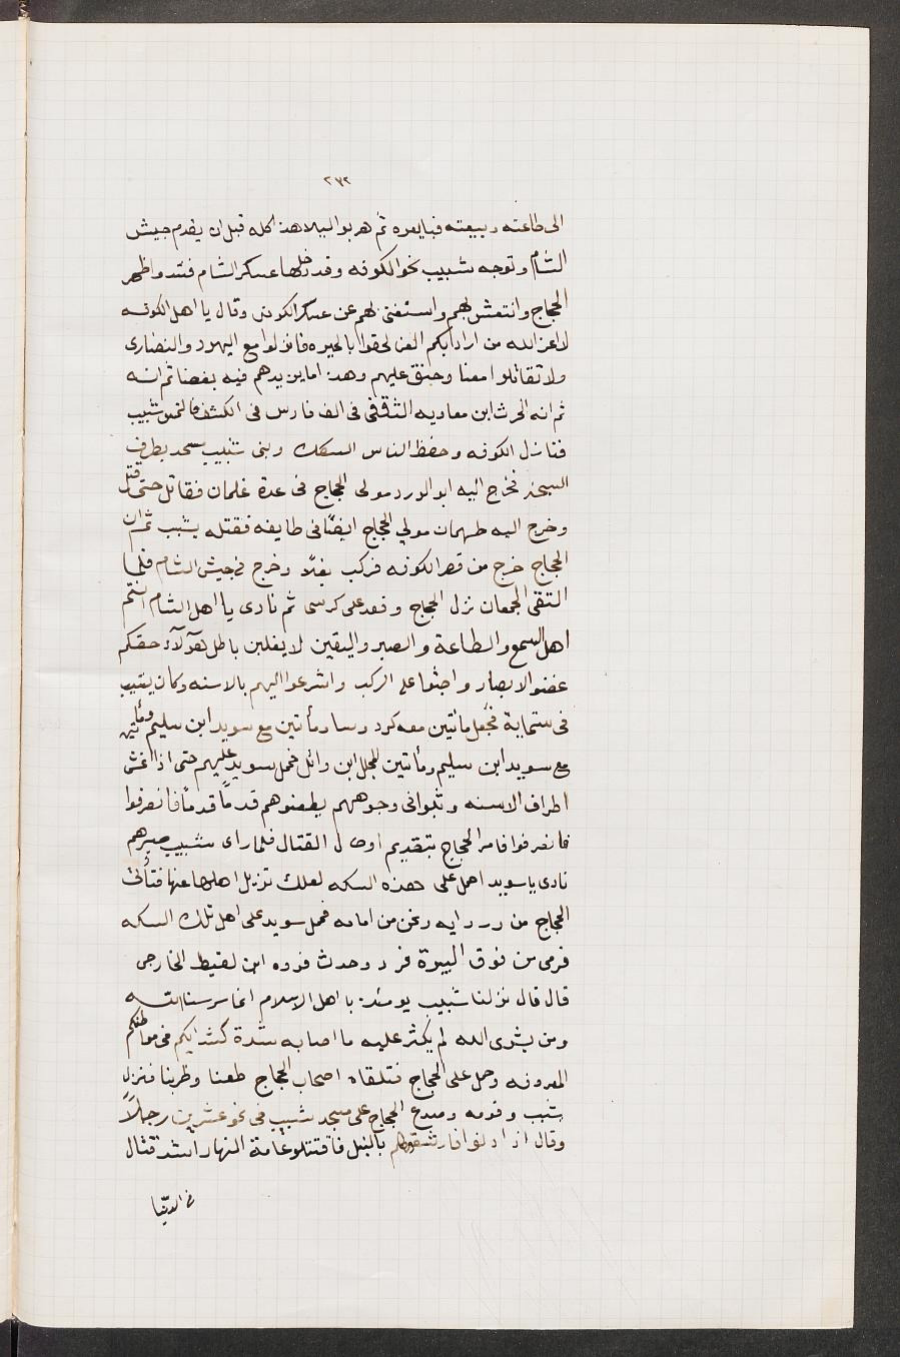 ٢٧٢
الى طاعته وبيعته فبايعوه ثم هربوا ليلا هذا كله قبل ان يقدم جيش
الشام وتوجه شبيب نحو الكوفه وقد دخلها عسكر الشام فشدوا ظهر
الحجاج وانتعش بهم واستغنى بهم عن عسكر الكوفه وقال يا اهل الكوفه
لا اعز الله من اراد بكم العز الحقوا بالحيره فانزلوا مع اليهود والنصارى
ولا تقاتلوا معنا وحنق عليهم وهذا مما يزيدهم فيه بغضا ثم انه
ثم انه الحرث ابن معاويه الثقفى فى الف فارس فى الكشف فالتمس شبيب
فنازل الكوفه وحفظ الناس السكك وبنى شبيب مسجد بطرف
السبخه فخرج اليه ابو الورد مولى الحجاج فى عدة غلمان فقاتل حتى قتل
وخرج اليه طهمان مولي الحجاج ايضًا فى طايفه فقتله شبيب ثم ان
الحجاج خرج من قصر الكوفه فركب بغلًا وخرج فى جيش الشام فلما
التقى الجمعان نزل الحجاج وقعد على كرسى ثم نادى يا اهل الشام انتم
اهل السمع والطاعة والصبر واليقين لا يغلبن باطل هؤلآء حقكم
غضوا الابصار واجثوا على الركب واشرعوا اليهم بالاسنه وكان شبيب
فى ستماية فجعل مائتين معه كرد وسا ومأتين مع سويد ابن سليم ومأتين
مع سويد ابن سليم ومأتين للمجلل ابن وائل فحمل سويد عليهم حتى اذا غشى
اطراف الاسنه وثبوا فى وجوههم يطعنوهم قدمًا قدمًا فانصرفوا
فانصرفوا فامر الحجاج بتقديم اوصال القتال فلما راى شبيب صبرهم
نادى يا سويد احمل على هذه السكه لعلك تزيل اهلها عنها فتأتى
الحجاج من ورد ايه ونحن من امامه فحمل سويد على اهل تلك السكه
فرمى من فوق البيوة فرد وحدث فروه ابن لقيط الخارجى
قال قال نزلنا شبيب يومئذ يا اهل الاسلام انما شرينا لله
ومن يشرى الله لم يكثر عليه ما اصابه شدة كشدايكم فى مواطنكم
المعروفه وحمل على الحجاج فتلقاه اصحاب الحجاج طعنا وظربا فنزل
شبيب وقومه وصعدع الحجاج على مسجد شبيب فى نحو عشرين رجلًا
وقال اذا دنوا فارشقوهم بالنبل فاقتتلوا عامة النهار اشد قتال
فى الدنيا